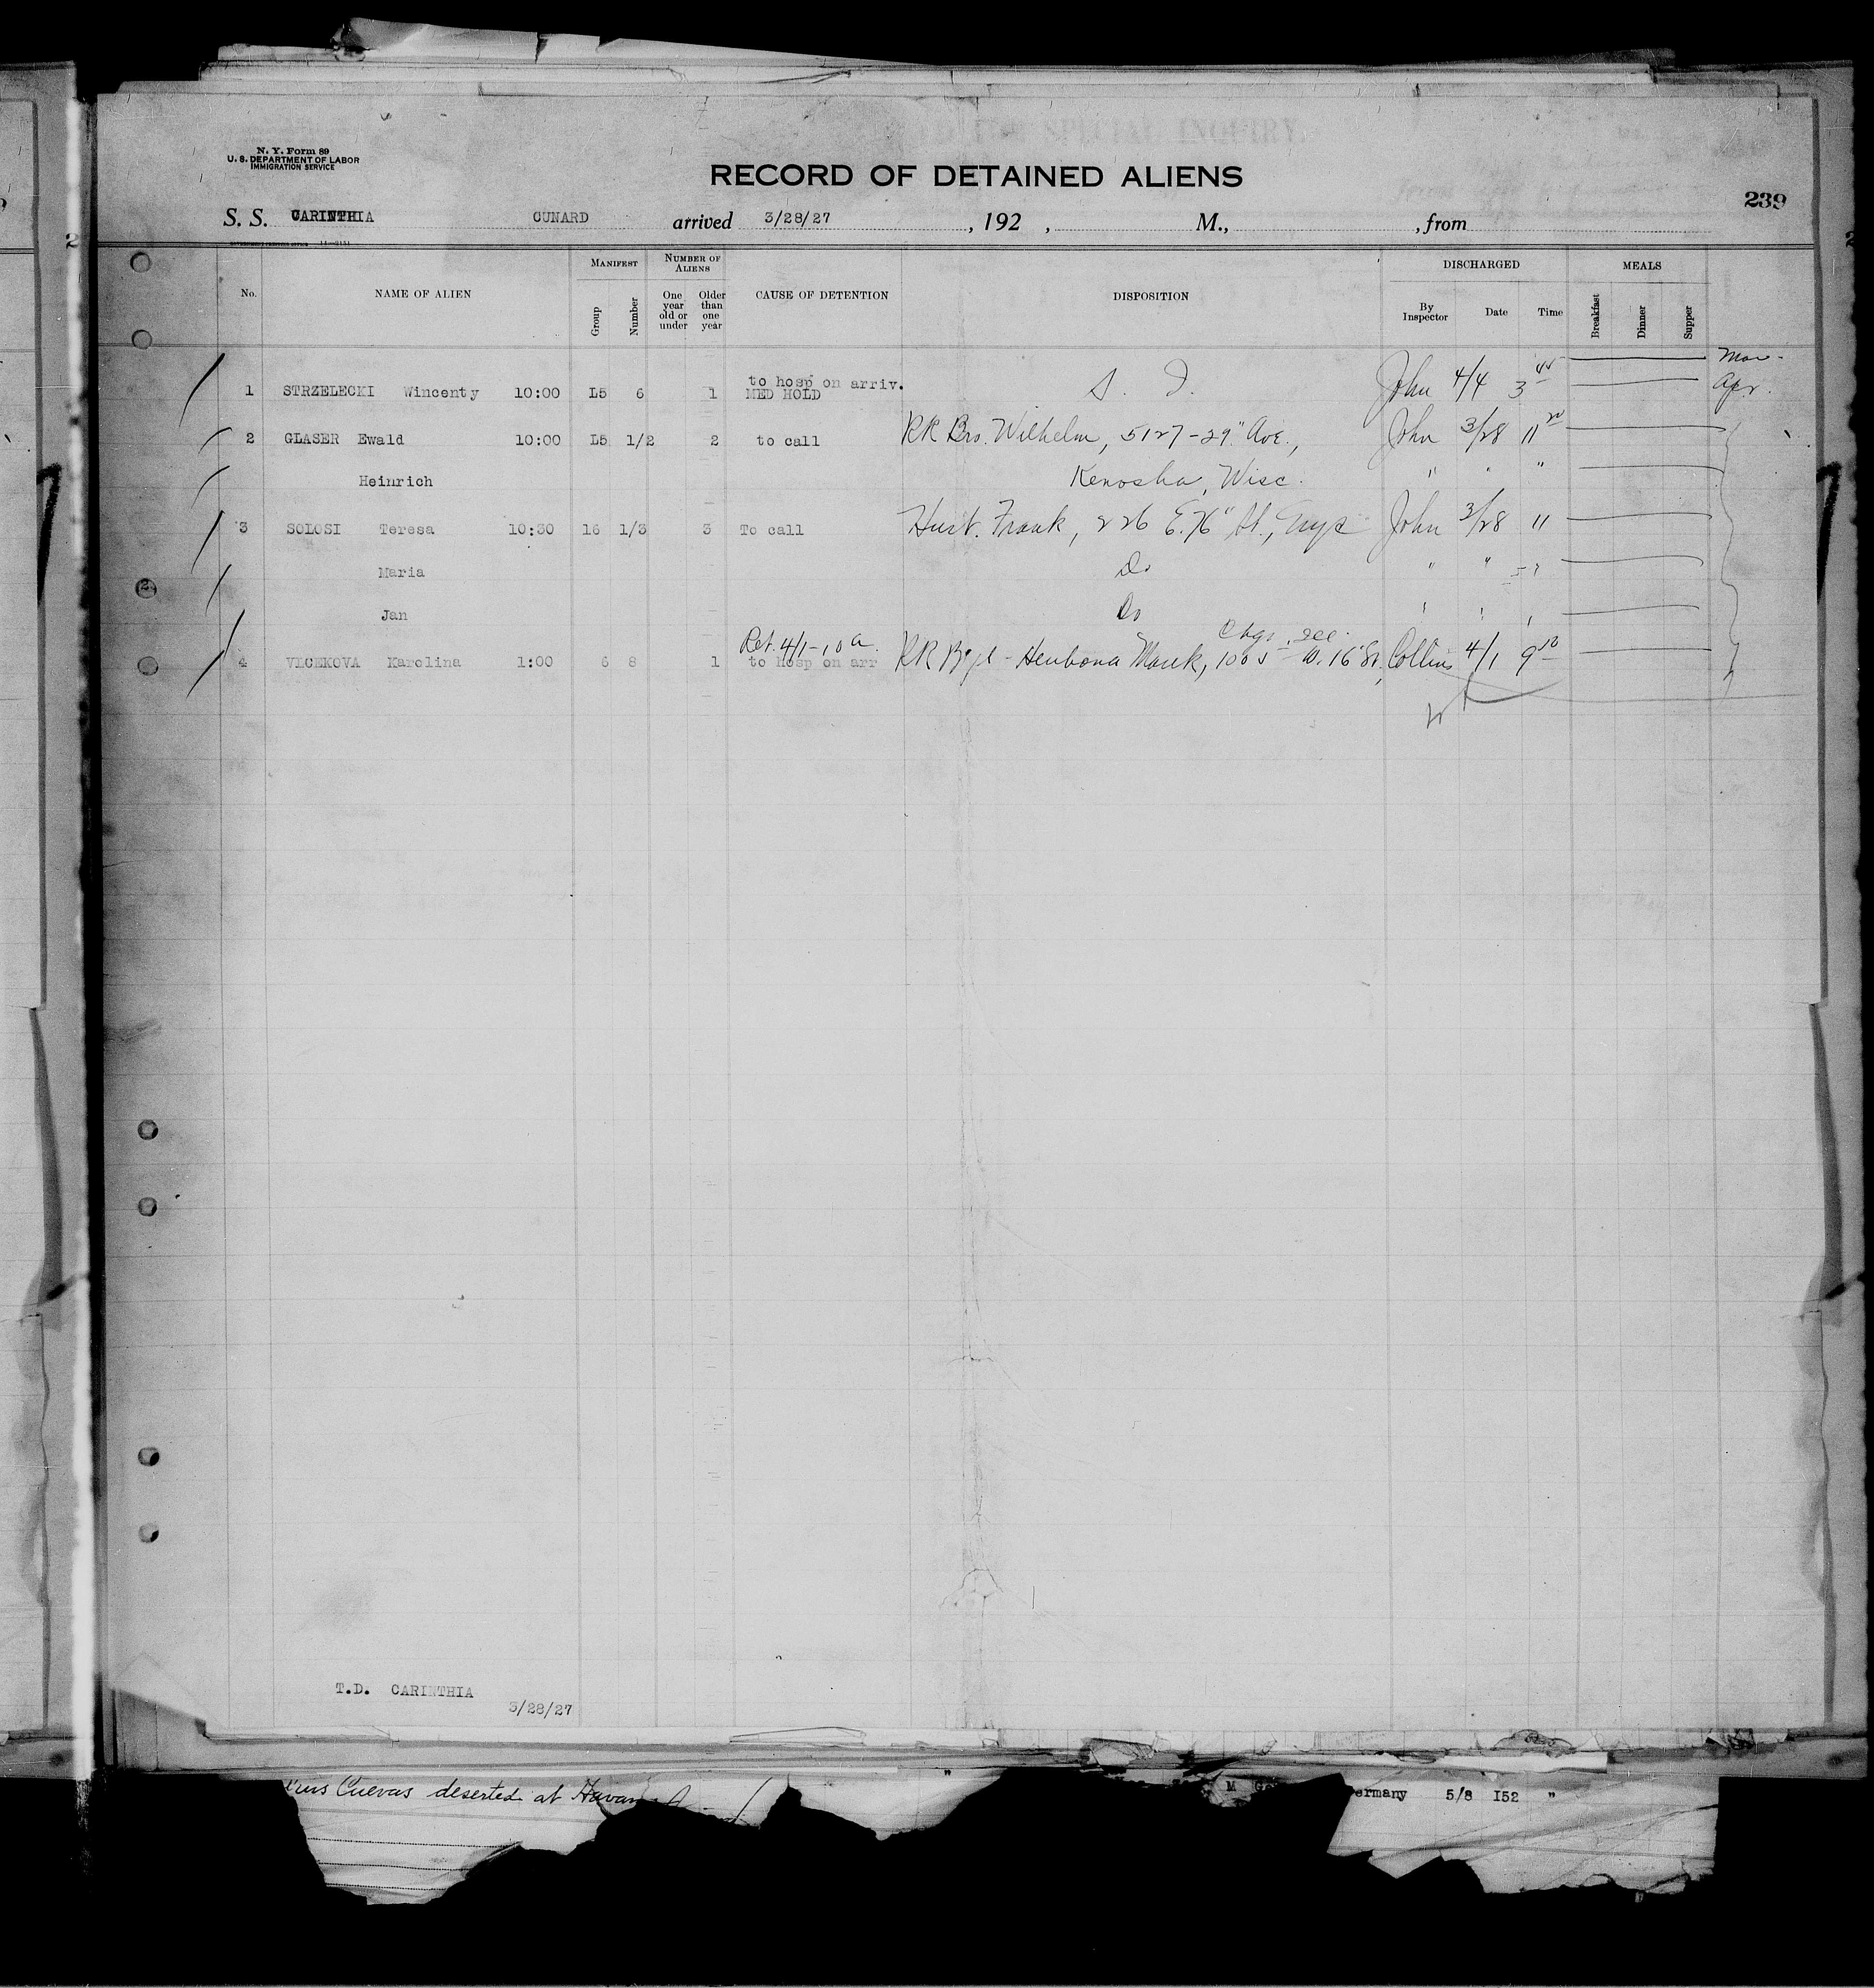 N. Y. Form 89
U. S. DEPARTMENT OF LABOR
IMMIGRATION SERVICE
RECORD OF DETAINED ALIENS
239
S. S. CARINTHIA CUNARD arrived 3/28/27, 192 , M., , from
No. NAME OF ALIEN MANIFEST Group Number NUMBER OF ALIENS One year old or under Older than one year CAUSE OF DETENTION DISPOSITION DISCHARGED By Inspector Date Time MEALS Breakfast Dinner Supper
Mar -
to hosp on arriv.
1 STRZELECKI Wincenty 10:00 L5 6 1 MED HOLD S. I. John 4/4 3 45 Apr.
2 GLASER Ewald 10:00 L5 1/2 2 to call RR Bro. Wilhelm, 5127-29" Ave., John 3/28 11 20
Heinrich Kenosha, Wisc. " " "
3 SOLOSI Teresa 10:30 16 1/3 3 To call Husb. Frank, 226 E. 76" St., nyc John 3/28 11
Maria Do " "
Jan Do " " "
Ret. 4/1-10 a.
4 VECEKOVA Karolina 1:00 6 8 1 to hosp on arr RR 1005 W. 16" St., Collins 4/1 9 50
T.D. CARINTHIA
3/28/27
Cuevas deserted at
ermany 5/8 152 "